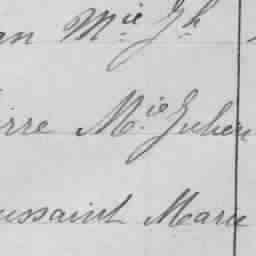 an M.ie Jh
ierre M.ie Julien
ussaint Marie